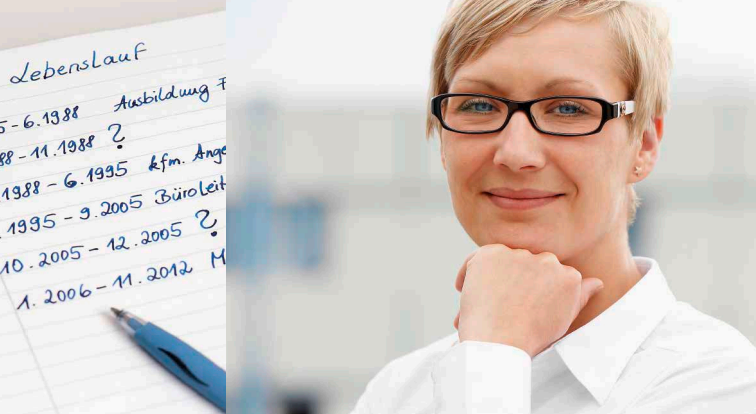 Lebenslauf
5-6.1988 Ausbildung F
88-11.1988 ?
1988-6.1995 kfm. Ange
1995-9.2005 Büroleit
10.2005-12.2005 ?
1.2006-11.2012 M